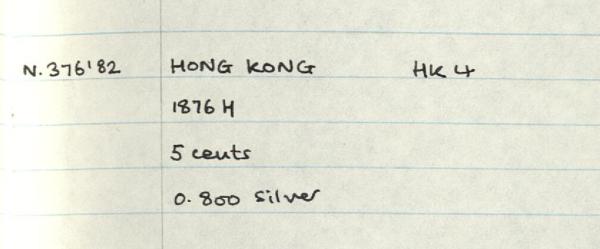 N.376'82 HONG KONG HK 4
1876 H
5 cents
0.800 silver